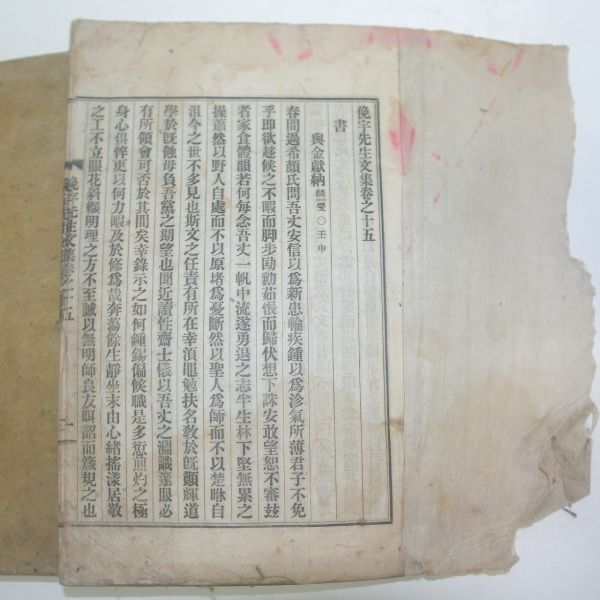 俛宇先生文集卷之十五
書
與金獻納 麟燮 ○ 壬申
春間過希顏氏問吾丈安信以爲新患輪疾鍾以爲沴氣所薄君子不免
乎即欲趍候之不暇而脚步劻勷茹悵而歸伏想下誅安敢望恕不審玆
者家食體韻若何每念吾丈一帆中流遂勇退之志半生林下堅無累之
操蕭然以野人自處而不以原堵爲憂斷然以聖人爲師而不以楚咻自
沮今之世不多見也斯文之任責有所在幸湏黽勉扶名敎於旣顚輝道
學於旣蝕毋負吾黨之期望也聞近讀性齋士儀以吾丈之淵識邃眼必
有所領會可否於其間矣幸錄示之如何鍾錫偏候職是多愆煎灼之極
身心俱悴更以何力暇及於修爲哉奔蕩餘生靜坐末由心緖搖漾居敬
之工不立眼花斜纈明理之方不至誠以無明師良友畀詔而箴規之也
俛宇先生文集卷之十五
一